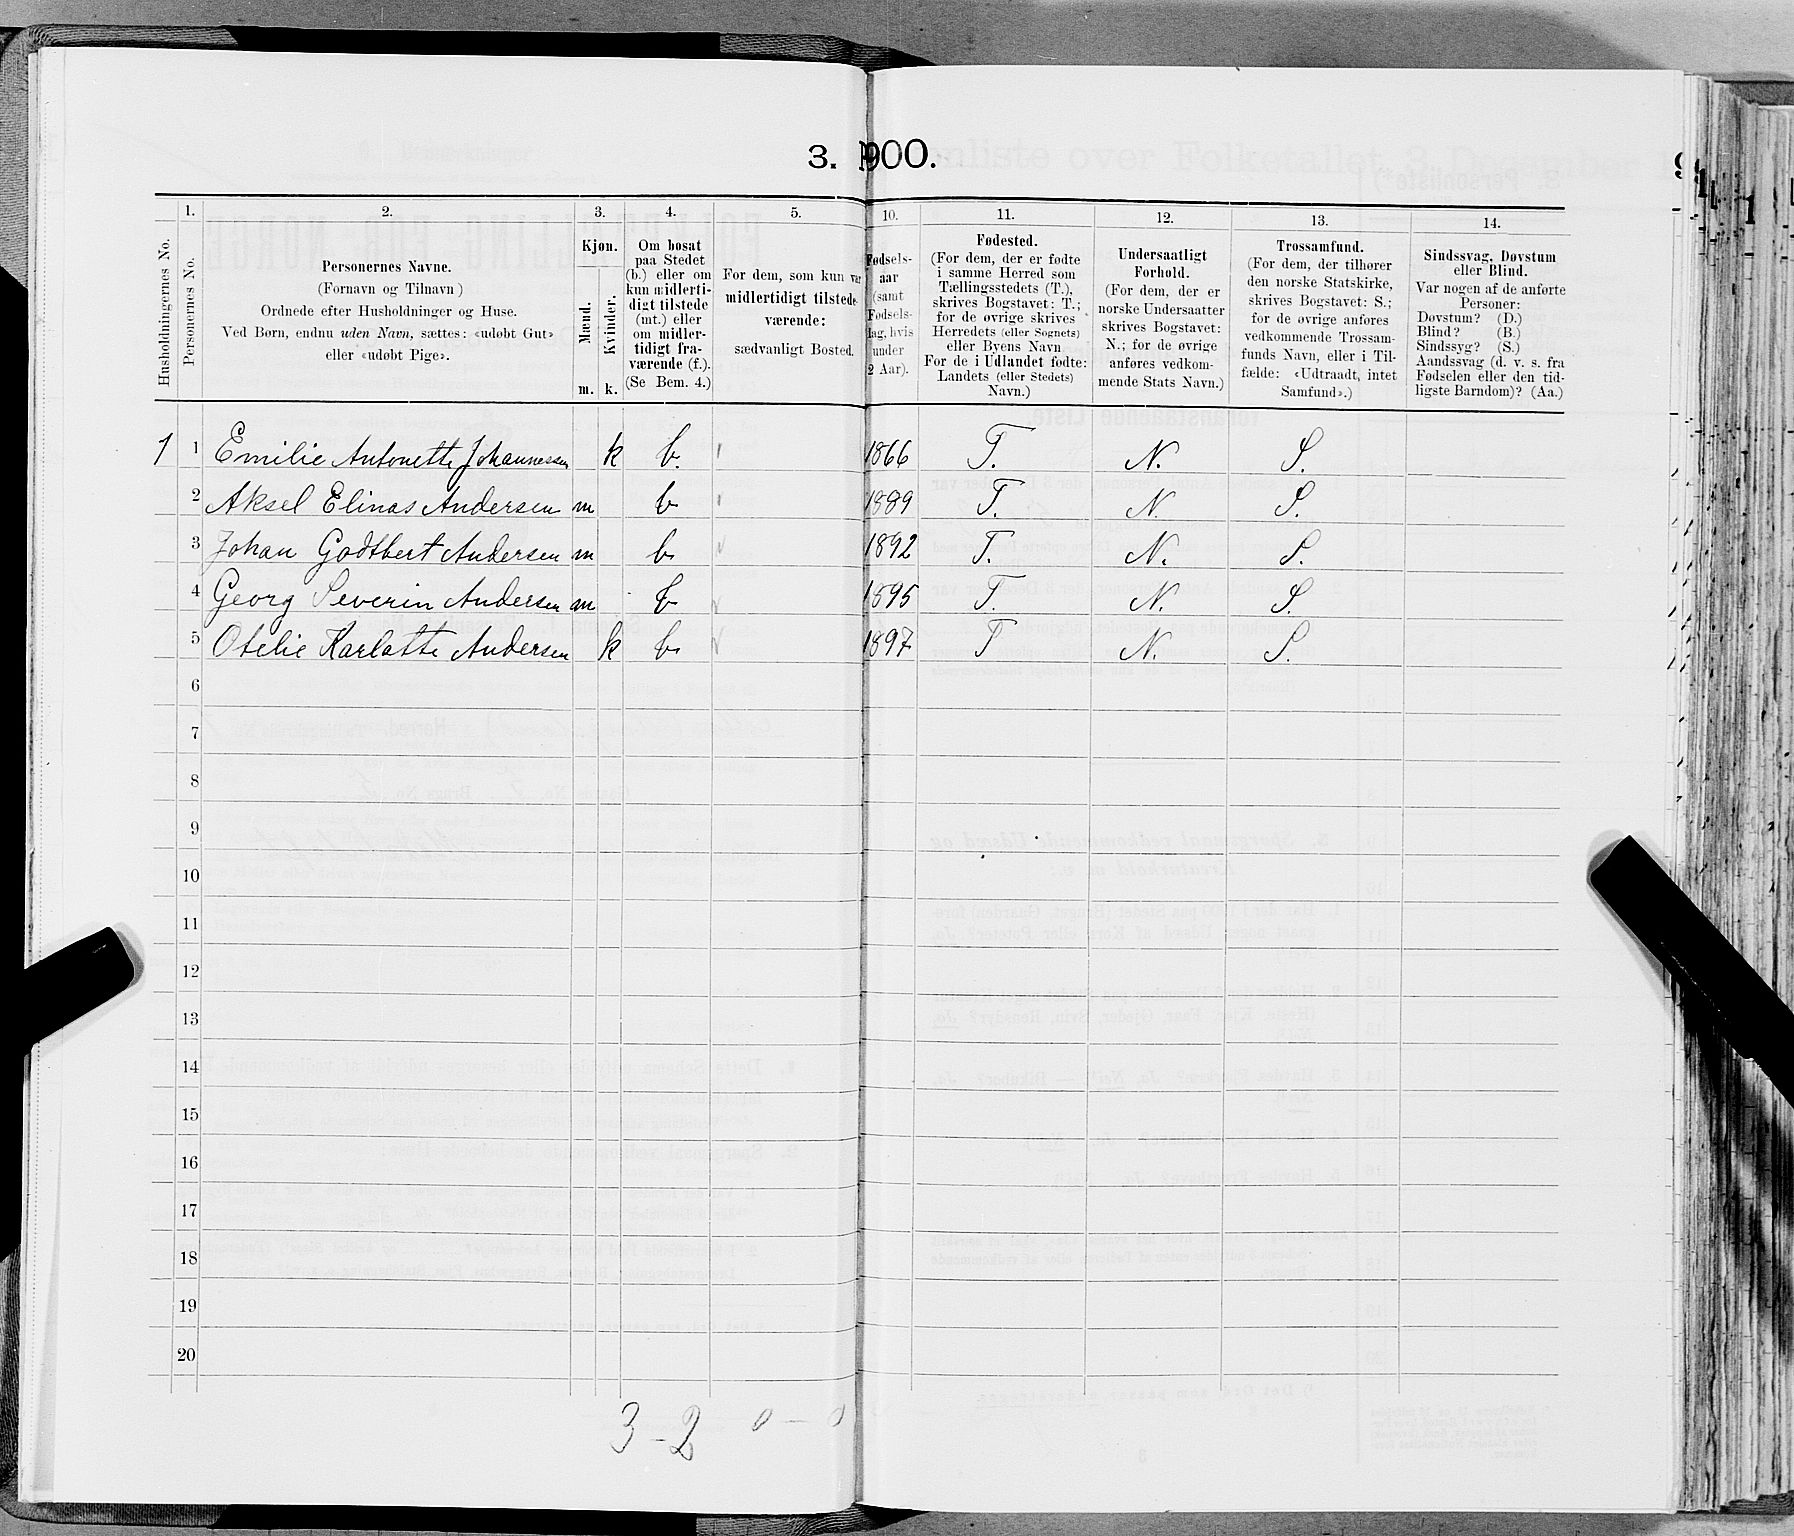 3. 900.
1. 2. 3. 4. 5. 10. 11. 12. 13. 14.
Husholdningernes No.
Personernes No.
Personernes Navne.
(Fornavn og Tilnavn)
Ordnede efter Husholdninger og Huse.
Ved Børn, endnu uden Navn, sættes: «udøbt Gut»
eller «udøbt Pige».
Kjøn.
Mænd.
Kvinder.
m. k.
Om bosat
paa Stedet
(b.) eller om
kun midlerti-
digt tilstede
(mt.) eller
om midler-
tidigt fra-
værende (f.).
(Se Bem. 4.)
For dem, som kun var
midlertidigt tilstede-
værende:
sædvanligt Bosted.
Fødsels-
aar
(samt
Fødsels-
dag, hvis
under
2 Aar).
Fødested.
(For dem, der er fødte
i samme Herred som
Tællingsstedets (T.),
skrives Bogstavet: T.;
for de øvrige skrives
Herredets (eller Sognets)
eller Byens Navn
For de i Udlandet fødte:
Landets (eller Stedets)
Navn.)
Undersaatligt
Forhold.
(For dem, der er
norske Undersaatter
skrives Bogstavet:
N.; for de øvrige
anføres vedkom-
mende Stats Navn.)
Trossamfund.
(For dem, der tilhører
den norske Statskirke,
skrives Bogstavet: S.;
for de øvrige anføres
vedkommende Trossam-
funds Navn, eller i Til-
fælde: «Udtraadt, intet
Samfund».)
Sindssvag, Døvstum
eller Blind.
Var nogen af de anførte
Personer:
Døvstum? (D.)
Blind? (B.)
Sindssyg? (S.)
Aandssvag (d. v. s. fra
Fødselen eller den tid-
ligste Barndom)? (Aa.)
1 1 Emilie Antonette Johannessen k b. 1866 T. N. S.
2 Aksel Elinas Andersen m b 1889 T. N. S.
3 Johan Godtbert Andersen m b. 1892 T. N. S.
4 Georg Severin Andersen m b 1895 T. N. S.
5 Otelie Karlotte Andersen k b. 1897 T N. S.
6
7
8
9
10
11
12
13
14
15
16
17
18
19
20
3 - 2 0 - 0